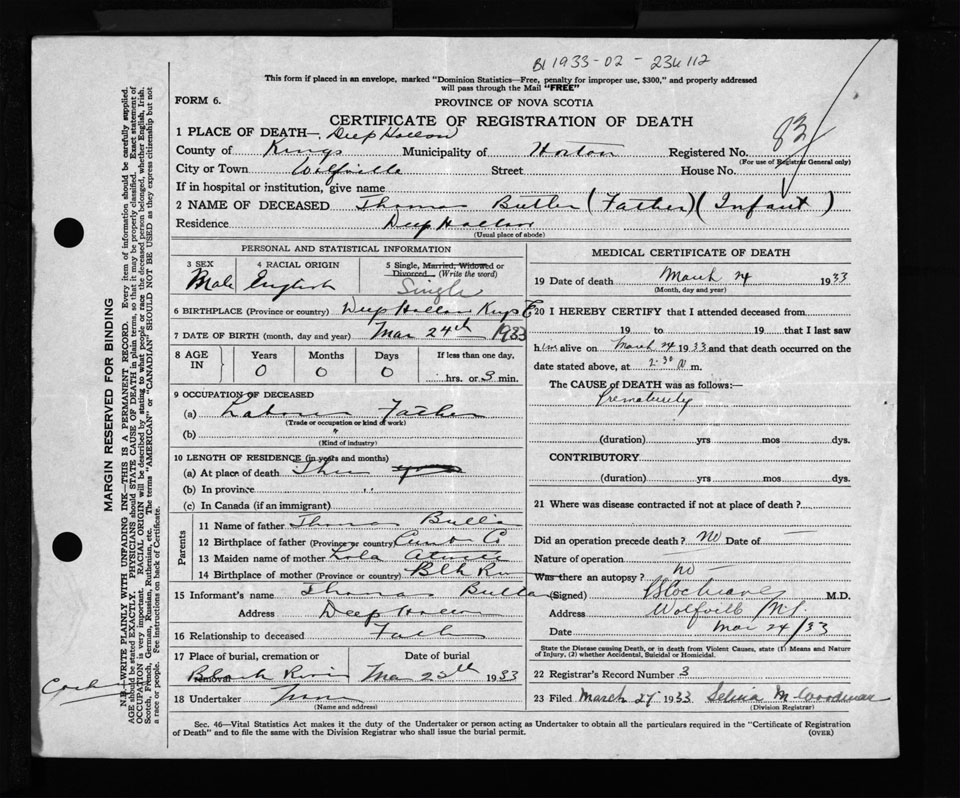 B1 1933-02-234112
This form if placed in an envelope, marked "Dominion Statistics—Free, penalty for improper use, $300," and properly addressed
will pass through the Mail "FREE"
FORM 6.
PROVINCE OF NOVA SCOTIA
CERTIFICATE OF REGISTRATION OF DEATH
83
1 PLACE OF DEATH—Deep Hollow
County of Kings Municipality of Horton Registered No.
(For use of Registrar General only)
City or Town Wolfville Street House No.
If in hospital or institution, give name
2 NAME OF DECEASED Thomas Butler (Father) (Infant)
Residence Deep Hollow
(Usual place of abode)
PERSONAL AND STATISTICAL INFORMATION
3 SEX 4 RACIAL ORIGIN 5 Single, Married, Widowed or
Divorced. (Write the word)
Male English Single
6 BIRTHPLACE (Province or country) Deep Hollow Kings
7 DATE OF BIRTH (month, day and year) Mar 24th 1933
8 AGE IN Years Months Days If less than one day,
0 0 0 hrs. or 3 min.
9 OCCUPATION OF DECEASED
(a) Labourer Father
(Trade or occupation or kind of work)
(b) "
(Kind of industry)
10 LENGTH OF RESIDENCE (in years and months)
(a) At place of death
(b) In province "
(c) In Canada (if an immigrant)
Parents
11 Name of father Thomas Butler
12 Birthplace of father (Province or country)
13 Maiden name of mother Lola
14 Birthplace of mother (Province or country) Blk Riv
15 Informant's name Thomas Butler
Address Deep Hollow
16 Relationship to deceased Father
17 Place of burial, cremation or removal Date of burial
Black River Mar 25th 1933
18 Undertaker
(Name and address)
MEDICAL CERTIFICATE OF DEATH
19 Date of death March 24 1933
(Month, day and year)
20 I HEREBY CERTIFY that I attended deceased from
19 to 19 that I last saw
him alive on March 24 1933 and that death occurred on the
date stated above, at 2.30 m.
The CAUSE OF DEATH was as follows:—
Prematurity
(duration) yrs mos dys.
CONTRIBUTORY
(duration) yrs mos dys.
21 Where was disease contracted if not at place of death?
Did an operation precede death? No Date of —
Nature of operation
Was there an autopsy? no —
(Signed) Cochrane M.D.
Address Wolfville N.S.
Date Mar 24/33
State the Disease causing Death, or in death from Violent Causes, state (1) Means and Nature
of Injury, (2) whether Accidental, Suicidal or Homicidal.
22 Registrar's Record Number 3
23 Filed March 27 1933 Selina M. Woodman
(Division Registrar)
Sec. 46—Vital Statistics Act makes it the duty of the Undertaker or person acting as Undertaker to obtain all the particulars required in the "Certificate of Registration
of Death" and to file the same with the Division Registrar who shall issue the burial permit. (OVER)
MARGIN RESERVED FOR BINDING
N.B.—WRITE PLAINLY WITH UNFADING INK—THIS IS A PERMANENT RECORD. Every item of information should be carefully supplied.
AGE should be stated EXACTLY. PHYSICIANS should STATE CAUSE OF DEATH in plain terms, so that it may be properly classified. Exact statement of
OCCUPATION is very important. RACIAL ORIGIN will be described by stating to what people or race the deceased person belonged, whether English, Irish,
Scotch, French, German, Russian, Ruthenian, etc. The terms "AMERICAN" or "CANADIAN" SHOULD NOT BE USED as they express citizenship but not
a race or people. See instructions on back of Certificate.